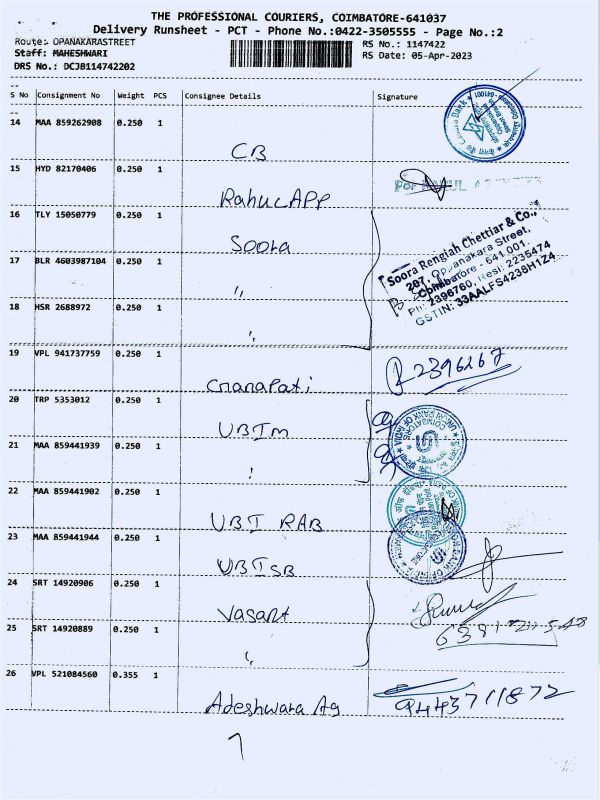 THE PROFESSIONAL COURIERS, COIMBATORE-641037
Delivery Runsheet - PCT - Phone No.:0422-3505555 - Page No.:2
Route: OPANAKARASTREET
RS No.: 1147422
Staff: MAHESHWARI
RS Date: 05-Apr-2023
DRS No.: DCJB114742202
S No Consignment No Weight PCS Consignee Details Signature
14 MAA 859262908 0.250 1
CB
15 HYD 82170406 0.250 1
Rahul APP
For RAHUL
16 TLY 15050779 0.250 1
Soora
Soora Rengiah Chettiar & Co.,
207, Oppanakara Street,
Coimbatore - 641 001.
Ph: 2396760, Resi: 2235474
GSTIN: 33AALFS4238H1Z4
17 BLR 4603987104 0.250 1
"
18 HSR 2688972 0.250 1
"
19 VPL 941737759 0.250 1
Gnanapati
2396267
20 TRP 5353012 0.250 1
UBI m
UNION BANK OF INDIA
COIMBATORE
21 MAA 859441939 0.250 1
"
22 MAA 859441902 0.250 1
UBI RAB
23 MAA 859441944 0.250 1
UBI SB
24 SRT 14920906 0.250 1
Vasant
25 SRT 14920889 0.250 1
"
26 VPL 521084560 0.355 1
Adeshwara Ag
9443711872
7